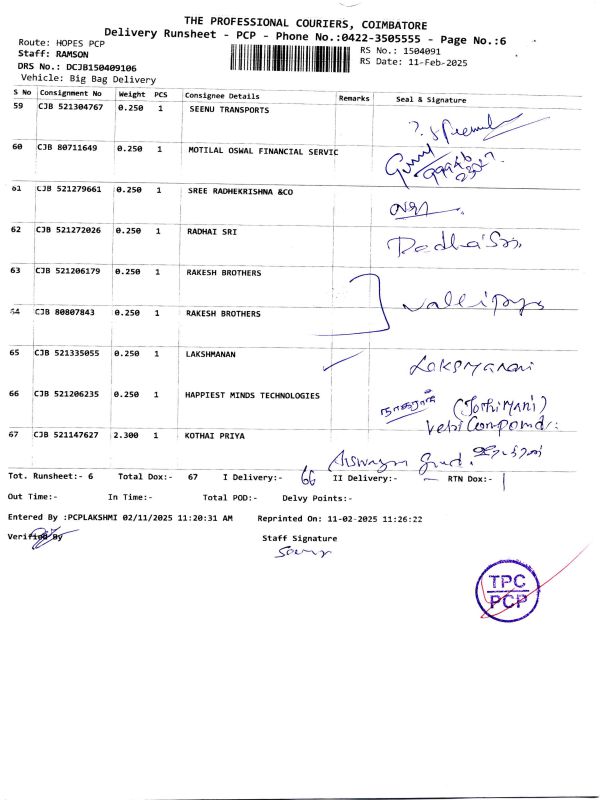 THE PROFESSIONAL COURIERS, COIMBATORE
Delivery Runsheet - PCP - Phone No.:0422-3505555 - Page No.:6
Route: HOPES PCP
Staff: RAMSON
DRS No.: DCJB150409106
Vehicle: Big Bag Delivery
RS No.: 1504091
RS Date: 11-Feb-2025
S No Consignment No Weight PCS Consignee Details Remarks Seal & Signature
59 CJB 521304767 0.250 1 SEENU TRANSPORTS
60 CJB 80711649 0.250 1 MOTILAL OSWAL FINANCIAL SERVIC
61 CJB 521279661 0.250 1 SREE RADHEKRISHNA &CO
62 CJB 521272026 0.250 1 RADHAI SRI
63 CJB 521206179 0.250 1 RAKESH BROTHERS
64 CJB 80807843 0.250 1 RAKESH BROTHERS
65 CJB 521335055 0.250 1 LAKSHMANAN
66 CJB 521206235 0.250 1 HAPPIEST MINDS TECHNOLOGIES
(JothiMani)
67 CJB 521147627 2.300 1 KOTHAI PRIYA
Tot. Runsheet:- 6 Total Dox:- 67 I Delivery:- 66 II Delivery:- — RTN Dox:- 1
Out Time:- In Time:- Total POD:- Delvy Points:-
Entered By :PCPLAKSHMI 02/11/2025 11:20:31 AM Reprinted On: 11-02-2025 11:26:22
Verified By Staff Signature
TPC
PCP